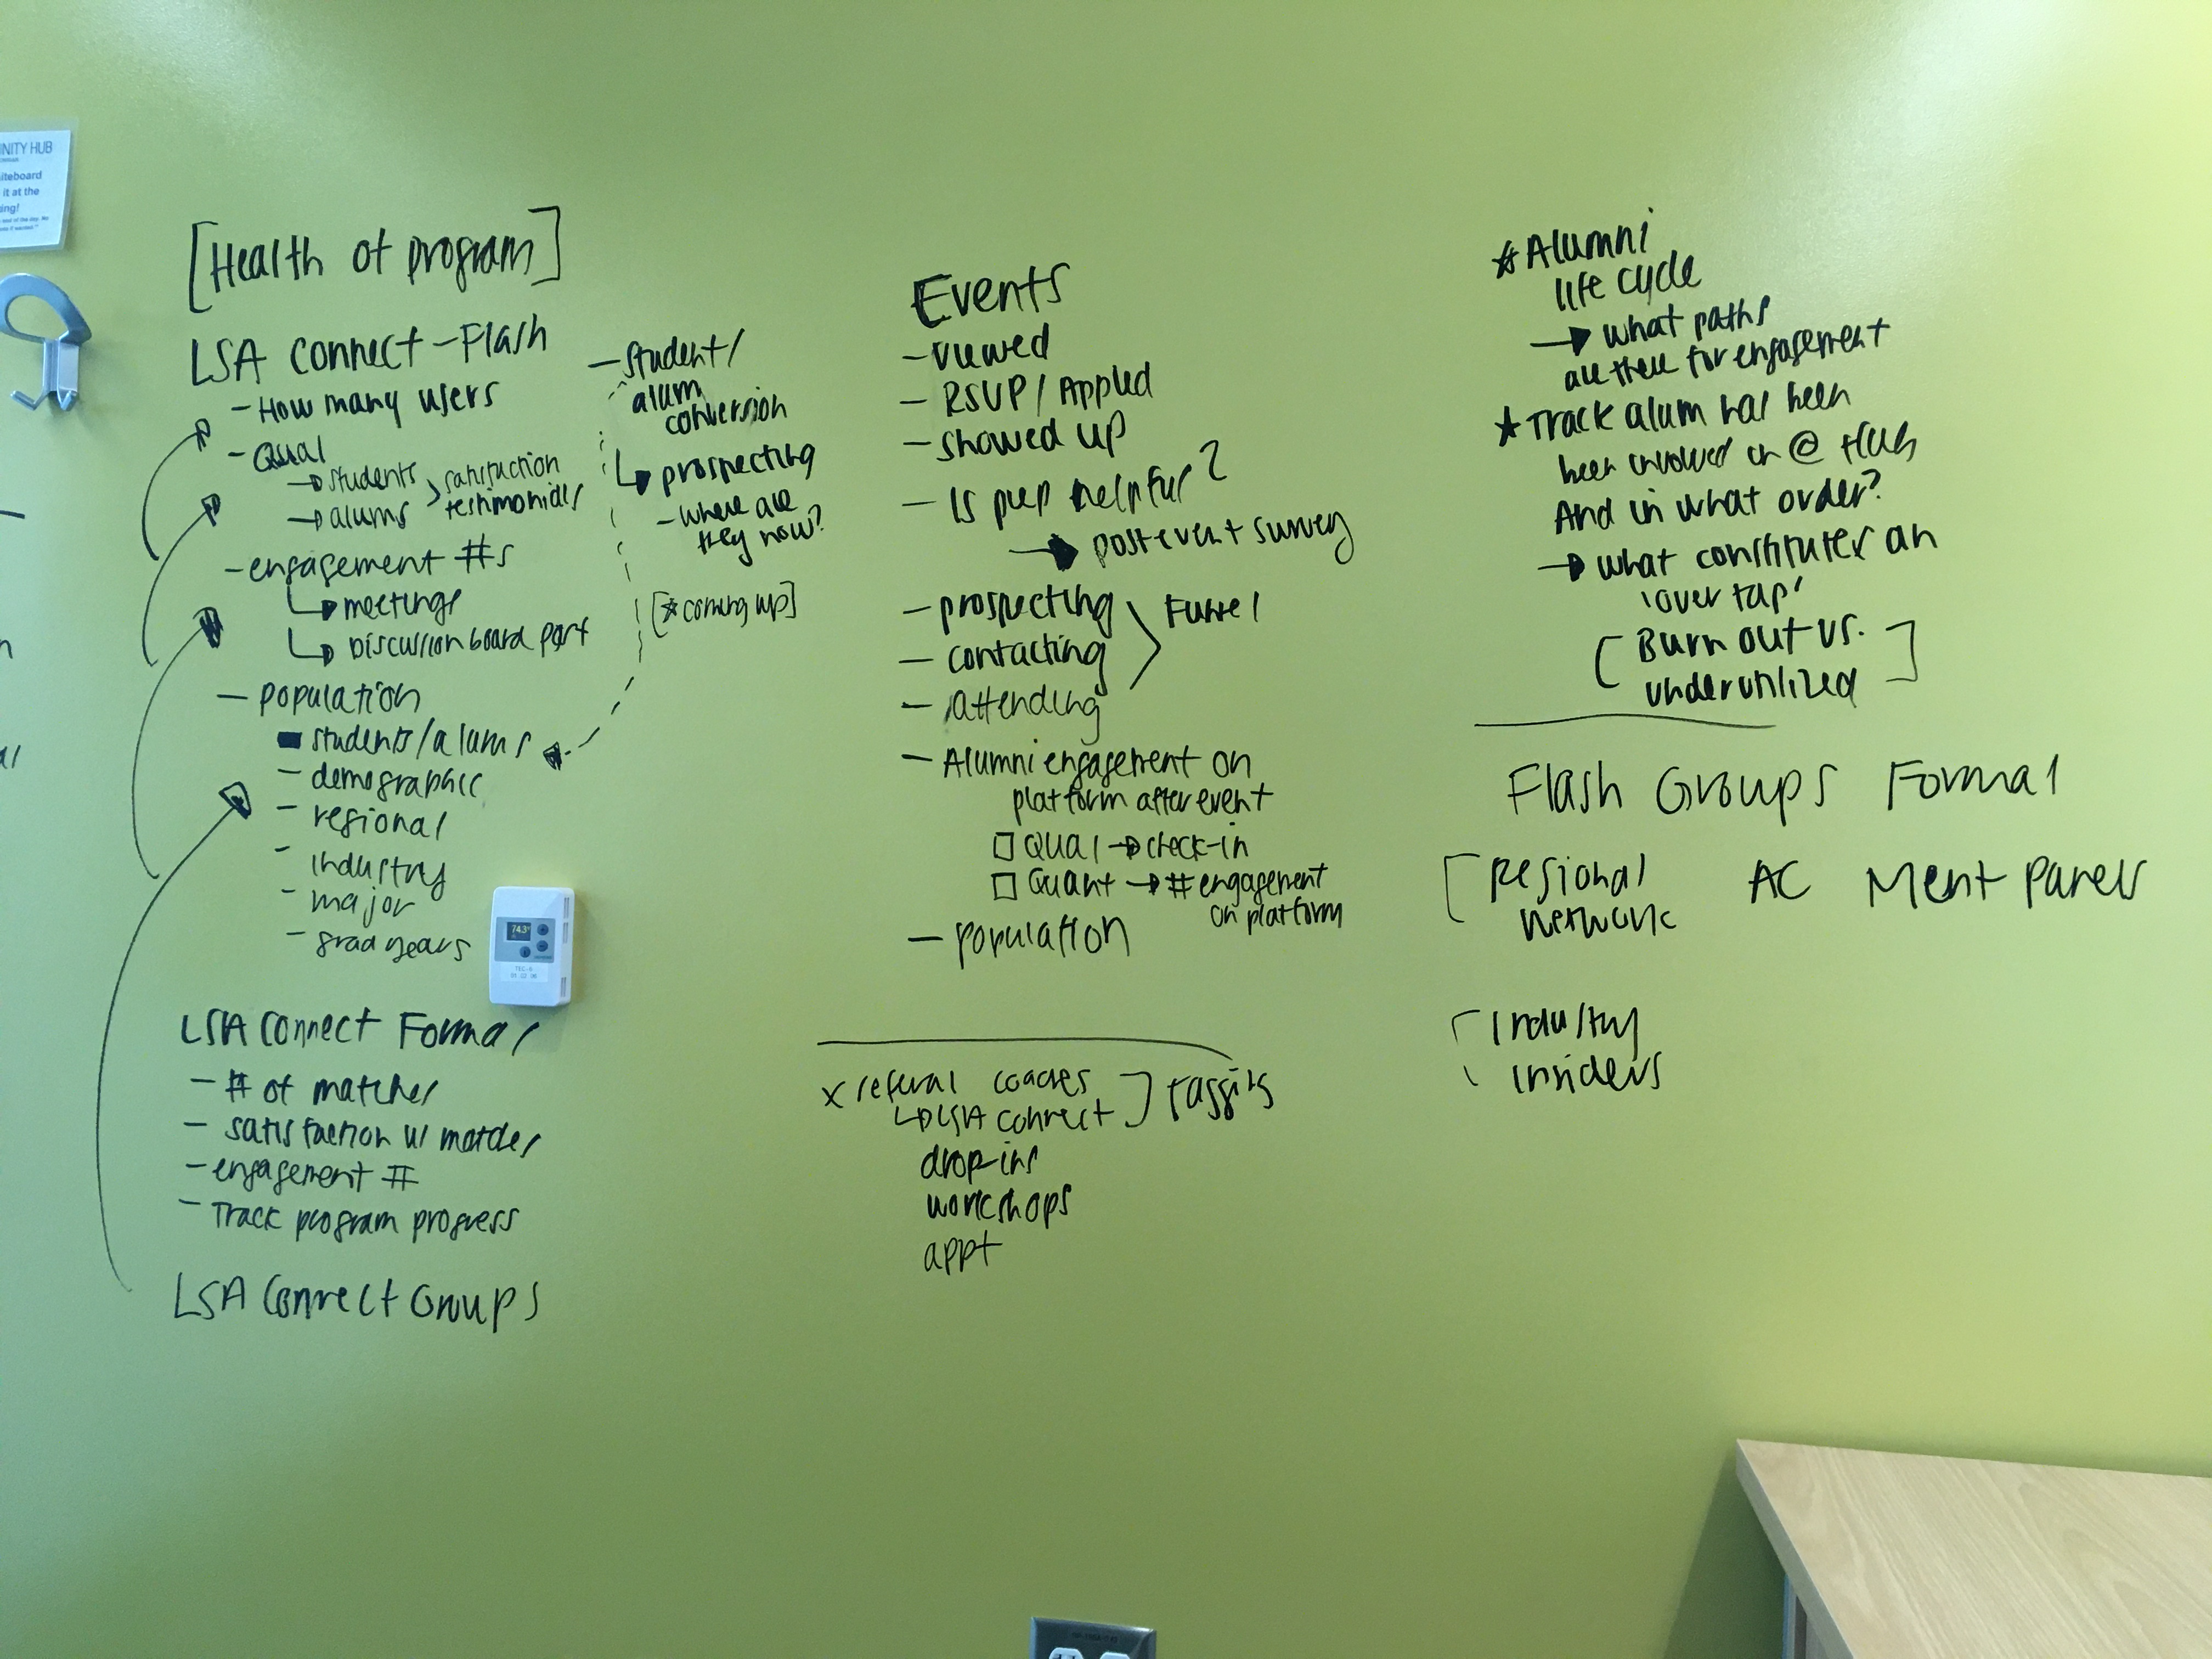 NITY HUB
iteboard
it at the
ing!
[Health of program]
LSA Connect - Flash
- How many users
- Qual
→ students
→ alums
> satisfaction
testimonials
- engagement #s
↳ meetings
↳ Discussion board part
- population
students/alums
- demographic
- regional
- industry
- major
- grad years
- student/
alum
conversion
↳ prospecting
- where are
they now?
[★ coming up]
74.3°
TEC-6
LSA Connect Formal
- # of matches
- satisfaction w/ matches
- engagement #
- Track program progress
LSA Connect Groups
Events
- viewed
- RSVP / Applied
- showed up
- Is prep helpful?
→ post event survey
- prospecting
- contacting
> Funnel
- attending
- Alumni engagement on
platform after event
□ Qual → check-in
□ Quant → # engagement
on platform
- population
x referral coaches
↳ LSA Connect
] tagging
drop-ins
workshops
appt
★ Alumni
life cycle
→ what paths
are there for engagement
★ Track alum has been
been involved in @ Hub
And in what order?
→ what constitutes an
'over tap'
[Burn out vs.
underutilized]
Flash Groups Formal
[Regional
Network
AC Ment Panels
[Industry
Insiders